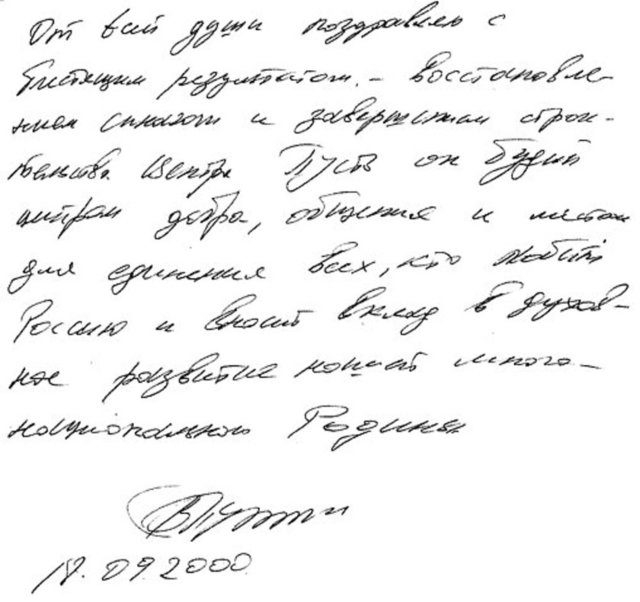 От всей души поздравляю с
блестящим результатом – восстановле-
нием синагоги и завершением строи-
тельства Центра Пусть он будет
центром добра, общения и местом
для единения всех, кто любит
Россию и вносит вклад в духов-
ное развитие нашей много-
национальной Родины
В Путин
18.09.2000